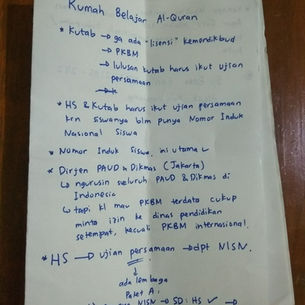 Rumah Belajar Al-Quran
* Kutab → ga ada "lisensi" Kemendikbud
→ PKBM
→ lulusan kutab harus ikut ujian
persamaan
* HS & Kutab harus ikut ujian persamaan
krn siswanya blm punya Nomor Induk
Nasional Siswa
* Nomor Induk Siswa ini utama
* Dirjen PAUD & Dikmas (Jakarta)
↳ ngurusin seluruh PAUD & Dikmas di
Indonesia
↳ tapi kl mau PKBM terdata cukup
minta izin ke dinas pendidikan
setempat, kecuali PKBM internasional.
* HS → ujian persamaan → dpt NISN.
ada lembaga
Paket A;
NISN → SD: HS ✓ →